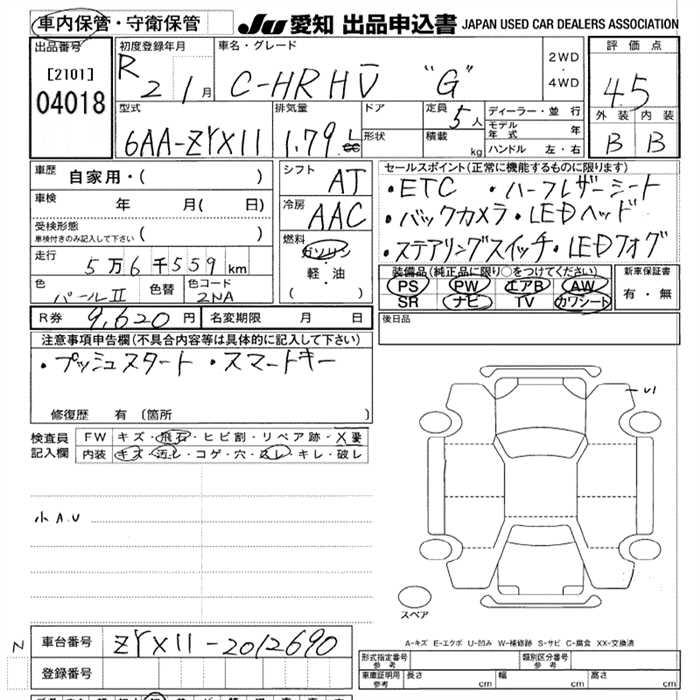 車内保管・守衛保管
JU 愛知 出品申込書 JAPAN USED CAR DEALERS ASSOCIATION
出品番号
[2101]
04018
初度登録年月
R 2 1月
車名・グレード
C-HR HV "G"
2WD
・
4WD
評価点
4.5
外装 内装
B B
型式
6AA-ZYX11
排気量
1.79 L
ドア
形状
定員 5人
積載 kg
ディーラー・並行
モデル年式 年
ハンドル 左・右
車歴
自家用・( )
車検
年 月( 日)
受検形態
車検付きのみ記入して下さい ( )
走行
5万6千559km
色
パールII
色替
色コード
2NA
シフト
AT
冷房
AAC
燃料
ガソリン
・
軽・油
( )
セールスポイント(正常に機能するものに限ります)
・ETC ・ハーフレザーシート
・バックカメラ・LEDヘッド
・ステアリングスイッチ・LEDフォグ
装備品(純正品に限り○をつけてください)
PS PW エアB AW
SR ナビ TV カワシート
新車保証書
有・無
R券 9,620円
名変期限 月 日
後日品
注意事項申告欄(不具合内容等は具体的に記入して下さい)
・プッシュスタート ・スマートキー
修復歴 有(箇所 )
検査員
記入欄
FW キズ・飛石・ヒビ割・リペア跡・X要
内装 キズ・汚レ・コゲ・穴・スレ・キレ・破レ
小A.U
U1
スペア
A-キズ E-エクボ U-凹み W-補修跡 S-サビ C-腐食 XX-交換済
N
車台番号 ZYX11-2012690
登録番号
形式指定番号
参考
類別区分番号
参考
車庫証明用
参考
長さ cm
幅 cm
高さ cm